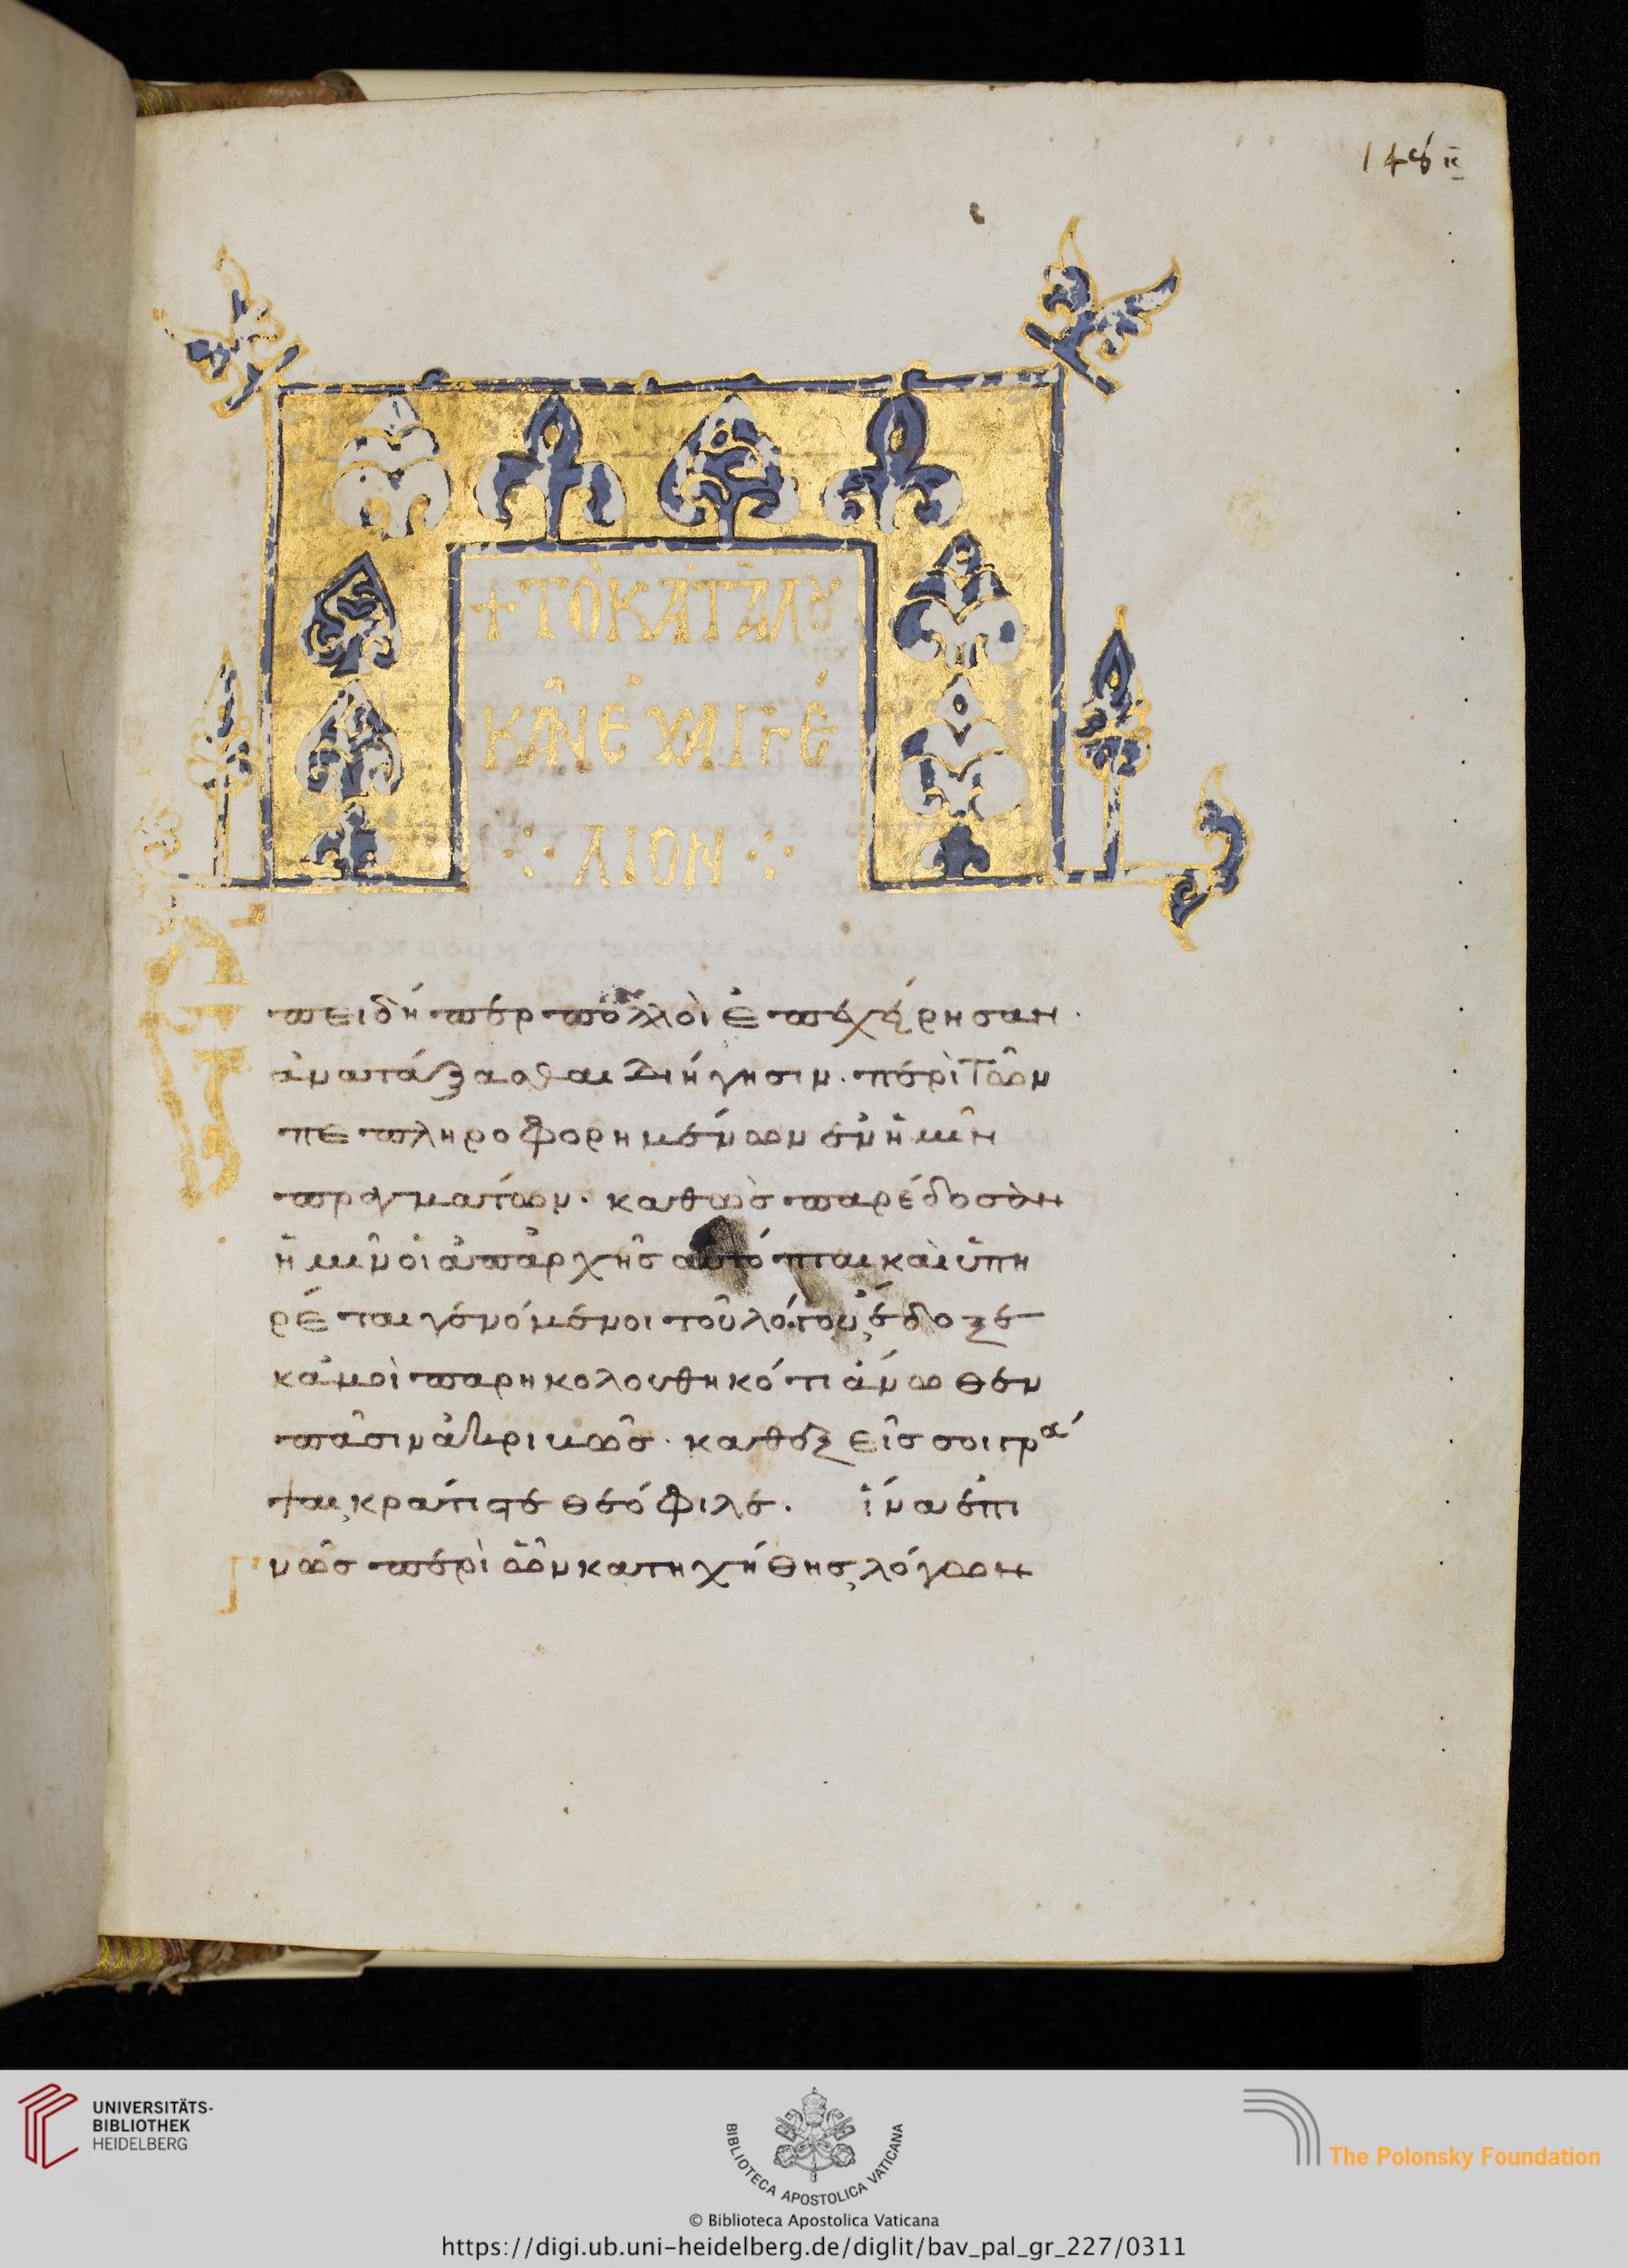 148 ii
+ ΤὸΚΑΤᾺΛΟΥ
ΚᾶΝΕὐΑΓΓΈ
ΛΙΟΝ
Ἐπειδήπερ πολλοὶ ἐπεχείρησαν·
ἀνατάξασθαι διήγησιν· περὶ τῶν
πεπληροφορημένων ἐν ἡμῖν
πραγμάτων· καθὼς παρέδοσὰν
ἡμῖν οἱ ἀπαρχῆς αὐτόπται καὶ ὑπη
ρέται γενόμενοι τοῦ λόγου, ἔδοξε
κἀμοὶ παρηκολουθηκότι ἄνωθεν
πᾶσιν ἀκριβῶς· καθεξεῖς σοι γρά
ψαι, κράτιστε θεόφιλε. ἵνα ἐπι
γνῶς περὶ ὧν κατηχήθης, λόγων
UNIVERSITÄTS-
BIBLIOTHEK
HEIDELBERG
BIBLIOTECA APOSTOLICA VATICANA
The Polonsky Foundation
© Biblioteca Apostolica Vaticana
https://digi.ub.uni-heidelberg.de/diglit/bav_pal_gr_227/0311